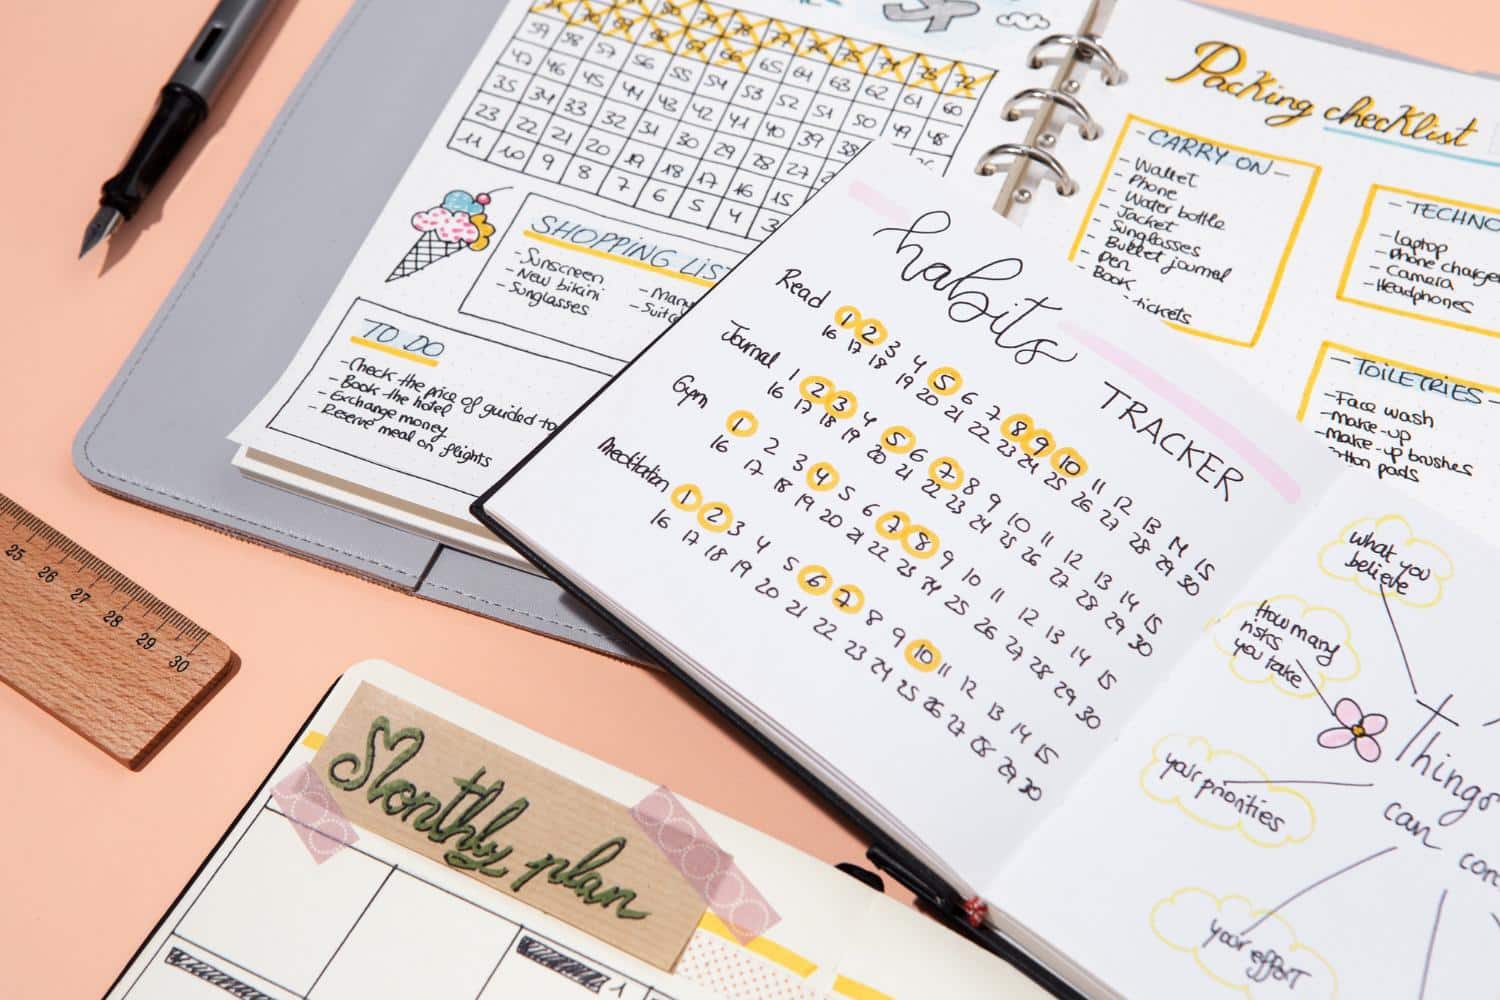 59 58 57 56 55 54 53 52 51 50 49 48
47 46 45 44 43 42 41 40 39 38
35 34 33 32 31 30 29 28 27
23 22 21 20 19 18 17 16 15
11 10 9 8 7 6 5 4 3
65 64 63 62 61 60
SHOPPING LIST
- Sunscreen
- New bikini
- Sunglasses
TO DO
- Check the price of guided
- Book the hotel
- Exchange money
- Reserve meal on flights
Packing checklist
- CARRY ON -
- Wallet
- Phone
- Water bottle
- Jacket
- Sunglasses
- Bullet journal
- Pen
- Book
- tickets
- Laptop
- Phone charger
- Camera
- Headphones
- TOILETRIES -
- Face wash
- Make-up
- Make-up brushes
pads
habits
TRACKER
Read 1 2 3 4 5 6 7 8 9 10 11 12 13 14 15
16 17 18 19 20 21 22 23 24 25 26 27 28 29 30
Journal 1 2 3 4 5 6 7 8 9 10 11 12 13 14 15
16 17 18 19 20 21 22 23 24 25 26 27 28 29 30
Gym 1 2 3 4 5 6 7 8 9 10 11 12 13 14 15
16 17 18 19 20 21 22 23 24 25 26 27 28 29 30
Meditation 1 2 3 4 5 6 7 8 9 10 11 12 13 14 15
16 17 18 19 20 21 22 23 24 25 26 27 28 29 30
what you
believe
How many
risks
you take
your priorities
your effort
Things
can
25 26 27 28 29 30
Monthly plan
1